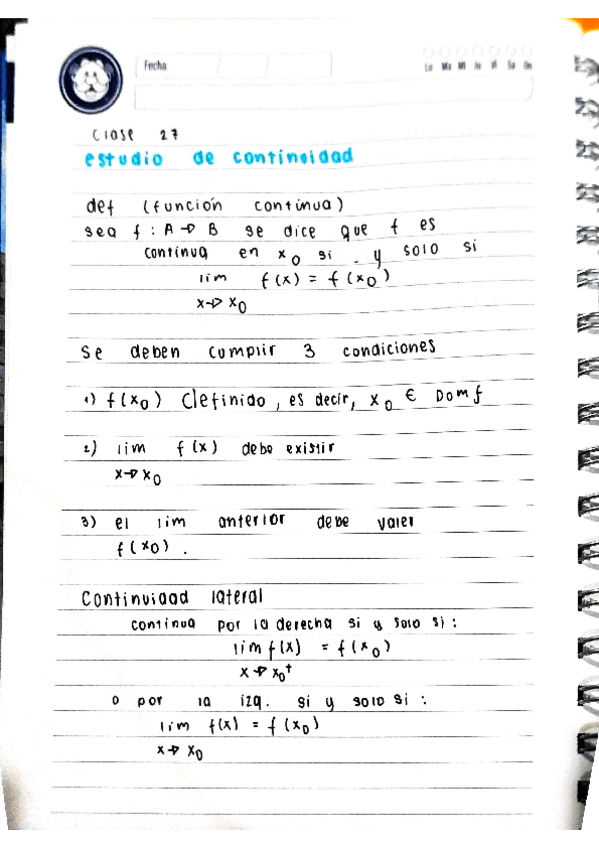 Fecha
Lu Ma Mi Ju Vi Sa Do
Clase 27
estudio de continuidad
def (función continua)
sea f : A → B se dice que f es
continua en x₀ si . y solo si
lim f(x) = f(x₀)
x→x₀
Se deben cumplir 3 condiciones
1) f(x₀) definido, es decir, x₀ ∈ Dom f
2) lim f(x) debe existir
x→x₀
3) el lim anterior debe valer
f(x₀).
Continuidad lateral
continua por la derecha si y solo si:
lim f(x) = f(x₀)
x→x₀⁺
o por la izq. si y solo si:
lim f(x) = f(x₀)
x→x₀